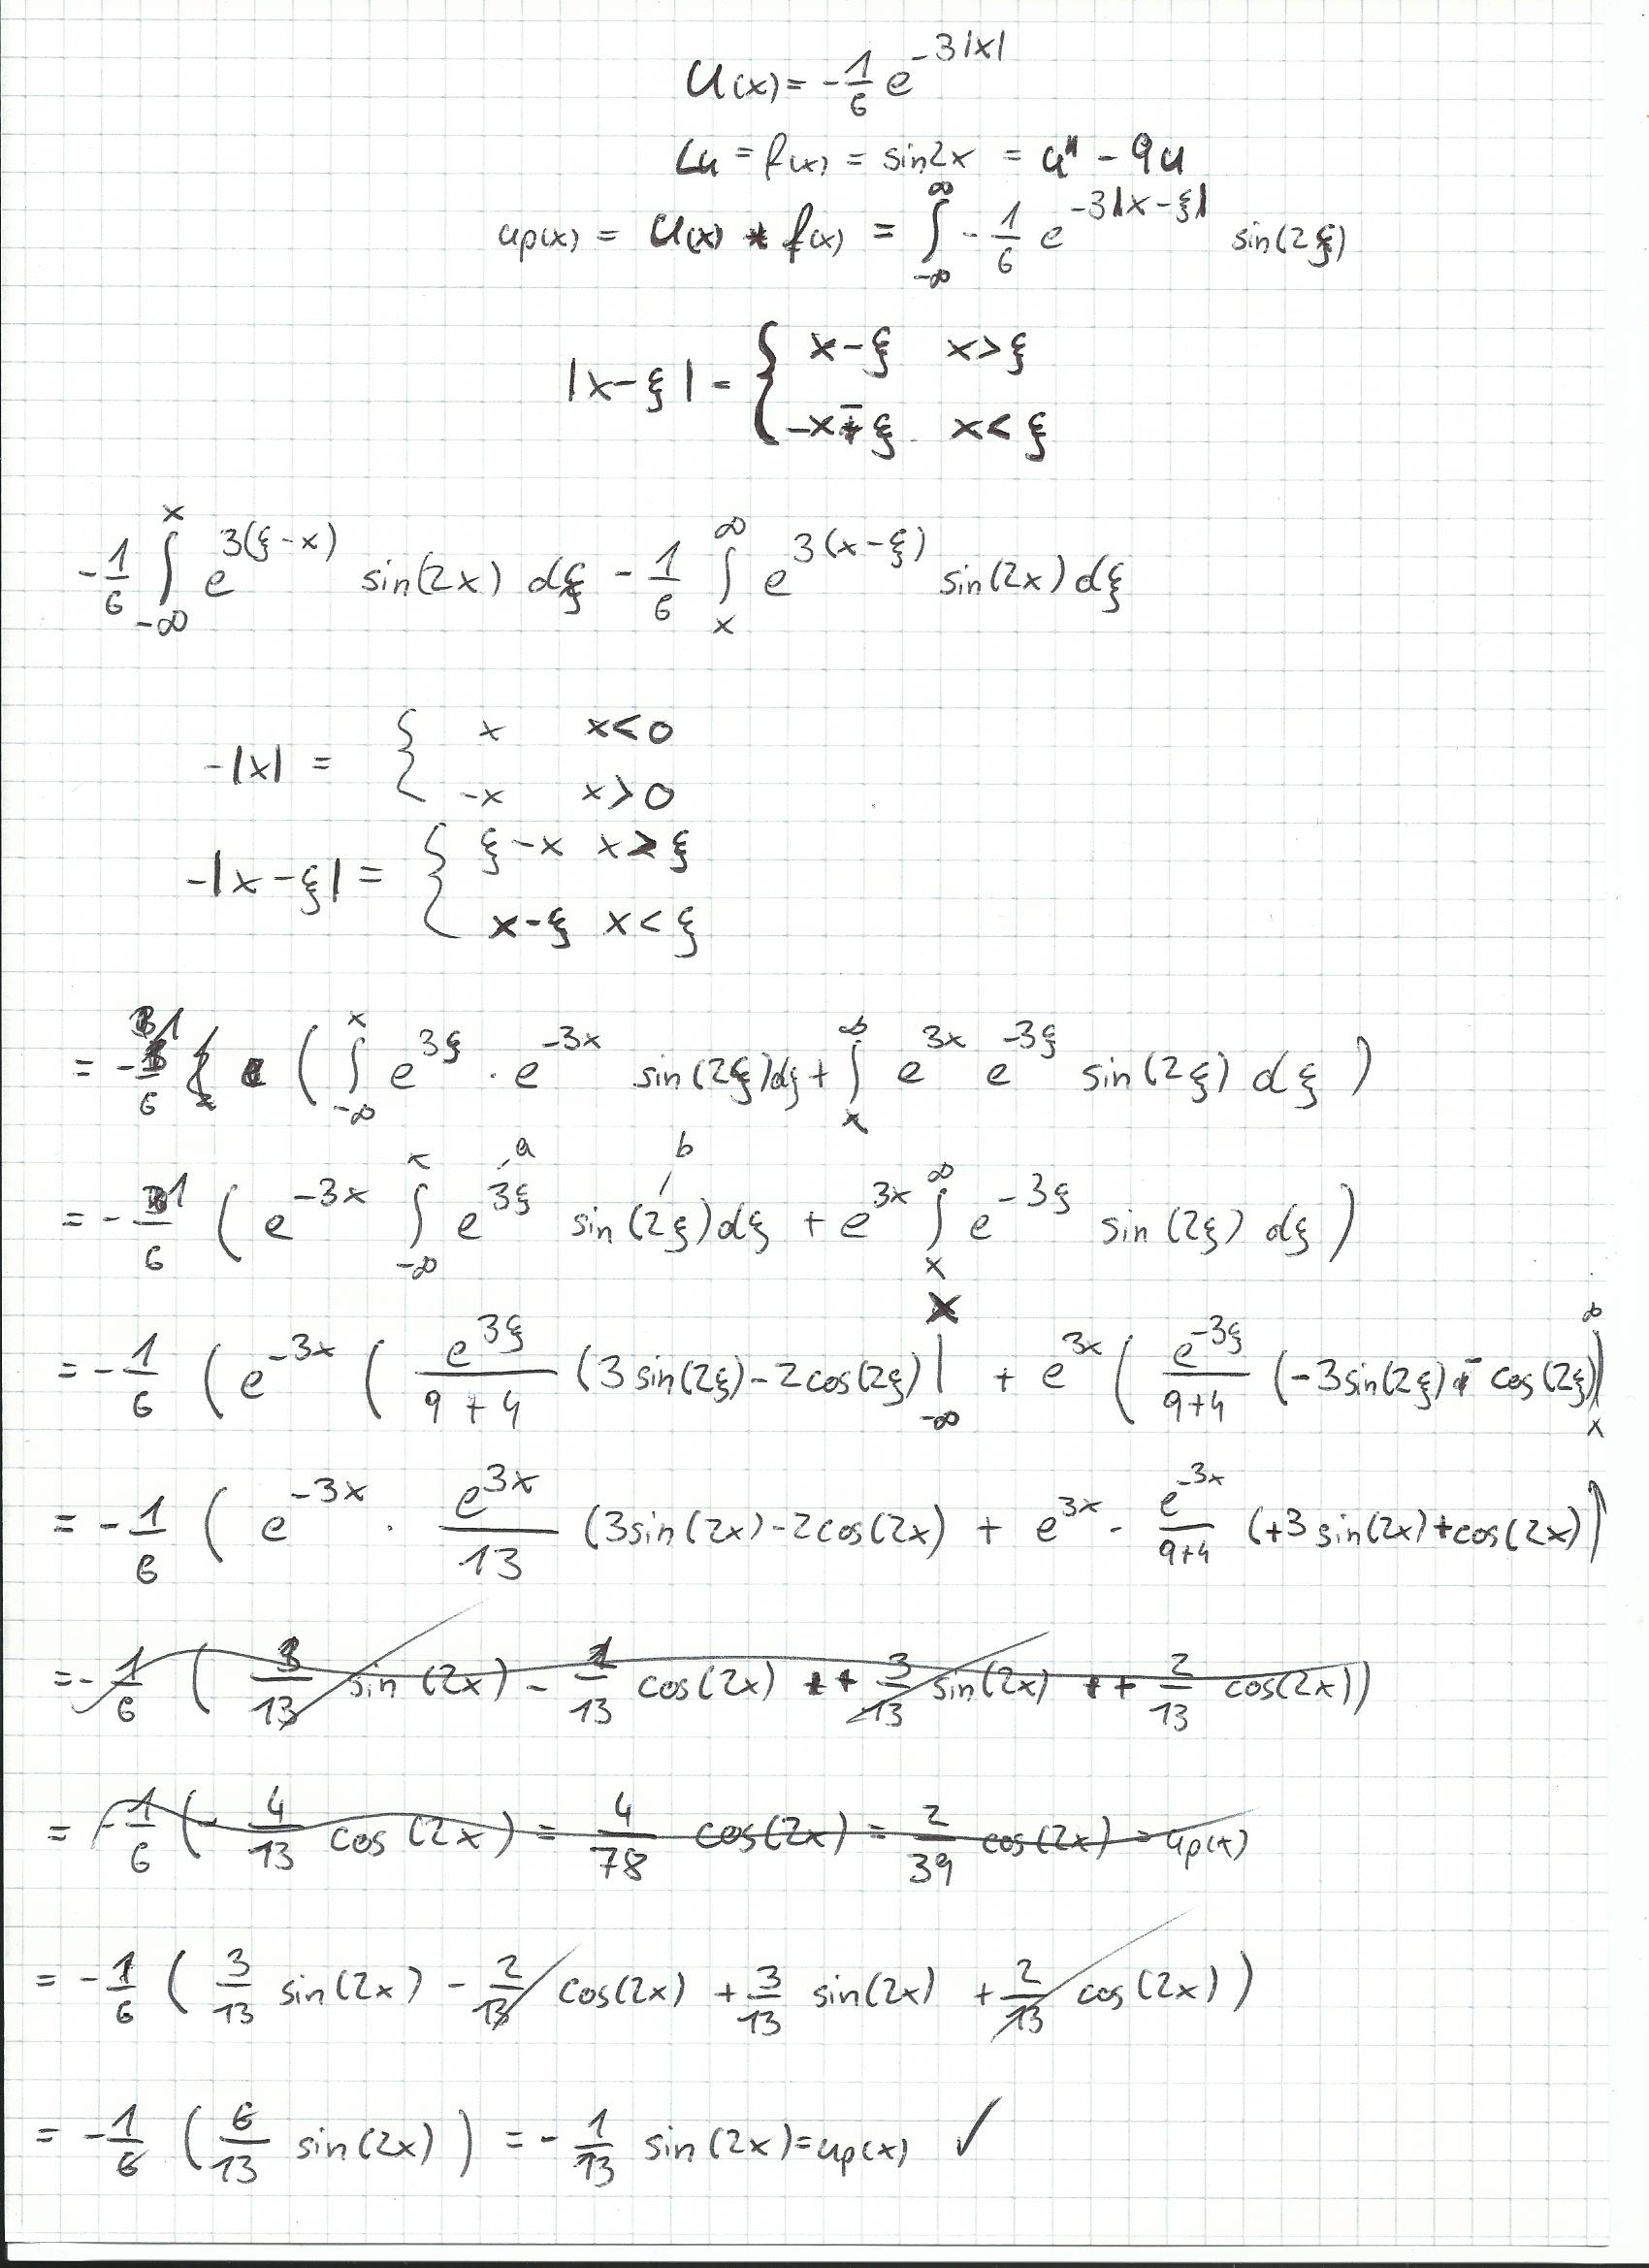 U(x) = -1/6 e^{-3|x|}
Lu = f(x) = sin2x = u" - 9u
up(x) = U(x) * f(x) = ∫_{-∞}^{∞} -1/6 e^{-3|x-ξ|} sin(2ξ)
|x-ξ| = { x-ξ   x>ξ
-x ξ   x<ξ
-1/6 ∫_{-∞}^{x} e^{3(ξ-x)} sin(2x) dξ - 1/6 ∫_{x}^{∞} e^{3(x-ξ)} sin(2x) dξ
-|x| = { x   x<0
-x   x>0
-|x-ξ| = { ξ-x   x≥ξ
x-ξ   x<ξ
= -1/6 ( ∫_{-∞}^{x} e^{3ξ} · e^{-3x} sin(2ξ)dξ + ∫_{x}^{∞} e^{3x} e^{-3ξ} sin(2ξ) dξ )
a b
= -1/6 ( e^{-3x} ∫_{-∞}^{x} e^{3ξ} sin(2ξ)dξ + e^{3x} ∫_{x}^{∞} e^{-3ξ} sin(2ξ) dξ )
= -1/6 ( e^{-3x} ( e^{3ξ}/(9+4) (3sin(2ξ)-2cos(2ξ) |_{-∞}^{x} + e^{3x} ( e^{-3ξ}/(9+4) (-3sin(2ξ) - cos(2ξ)) |_{x}^{∞}
= -1/6 ( e^{-3x} · e^{3x}/13 (3sin(2x)-2cos(2x) + e^{3x} - e^{-3x}/(9+4) (+3sin(2x)+cos(2x)))
= -1/6 ( 3/13 sin(2x) - 2/13 cos(2x) + 3/13 sin(2x) + 2/13 cos(2x))
= -1/6 (- 4/13 cos(2x) ) = 4/78 cos(2x) = 2/39 cos(2x) = up(x)
= -1/6 ( 3/13 sin(2x) - 2/13 cos(2x) + 3/13 sin(2x) + 2/13 cos(2x) )
= -1/6 ( 6/13 sin(2x) ) = - 1/13 sin(2x) = up(x) ✓